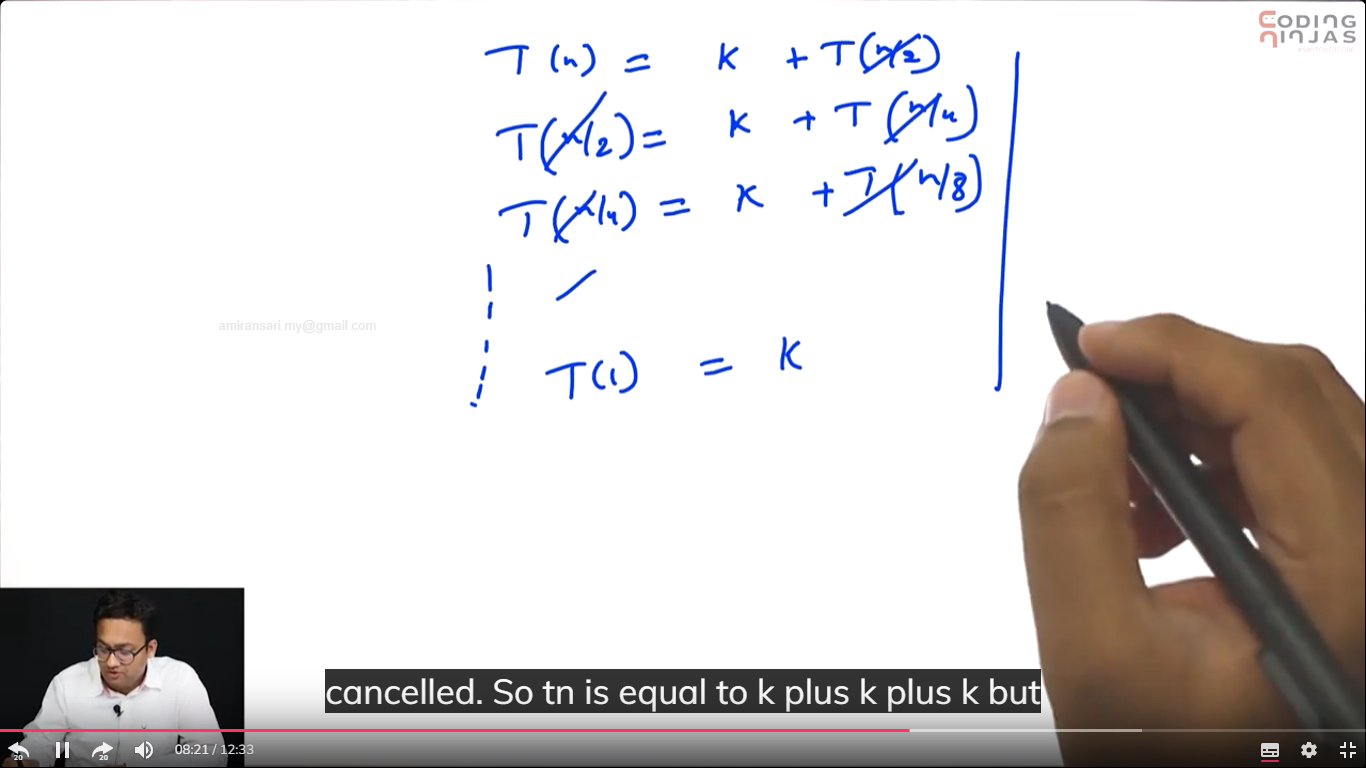 CODING
NINJAS
T(n) = K + T(n/2)
T(n/2) = K + T(n/4)
T(n/4) = K + T(n/8)
T(1) = K
amiransari.my@gmail.com
cancelled. So tn is equal to k plus k plus k but
20 20 08:21 / 12:33